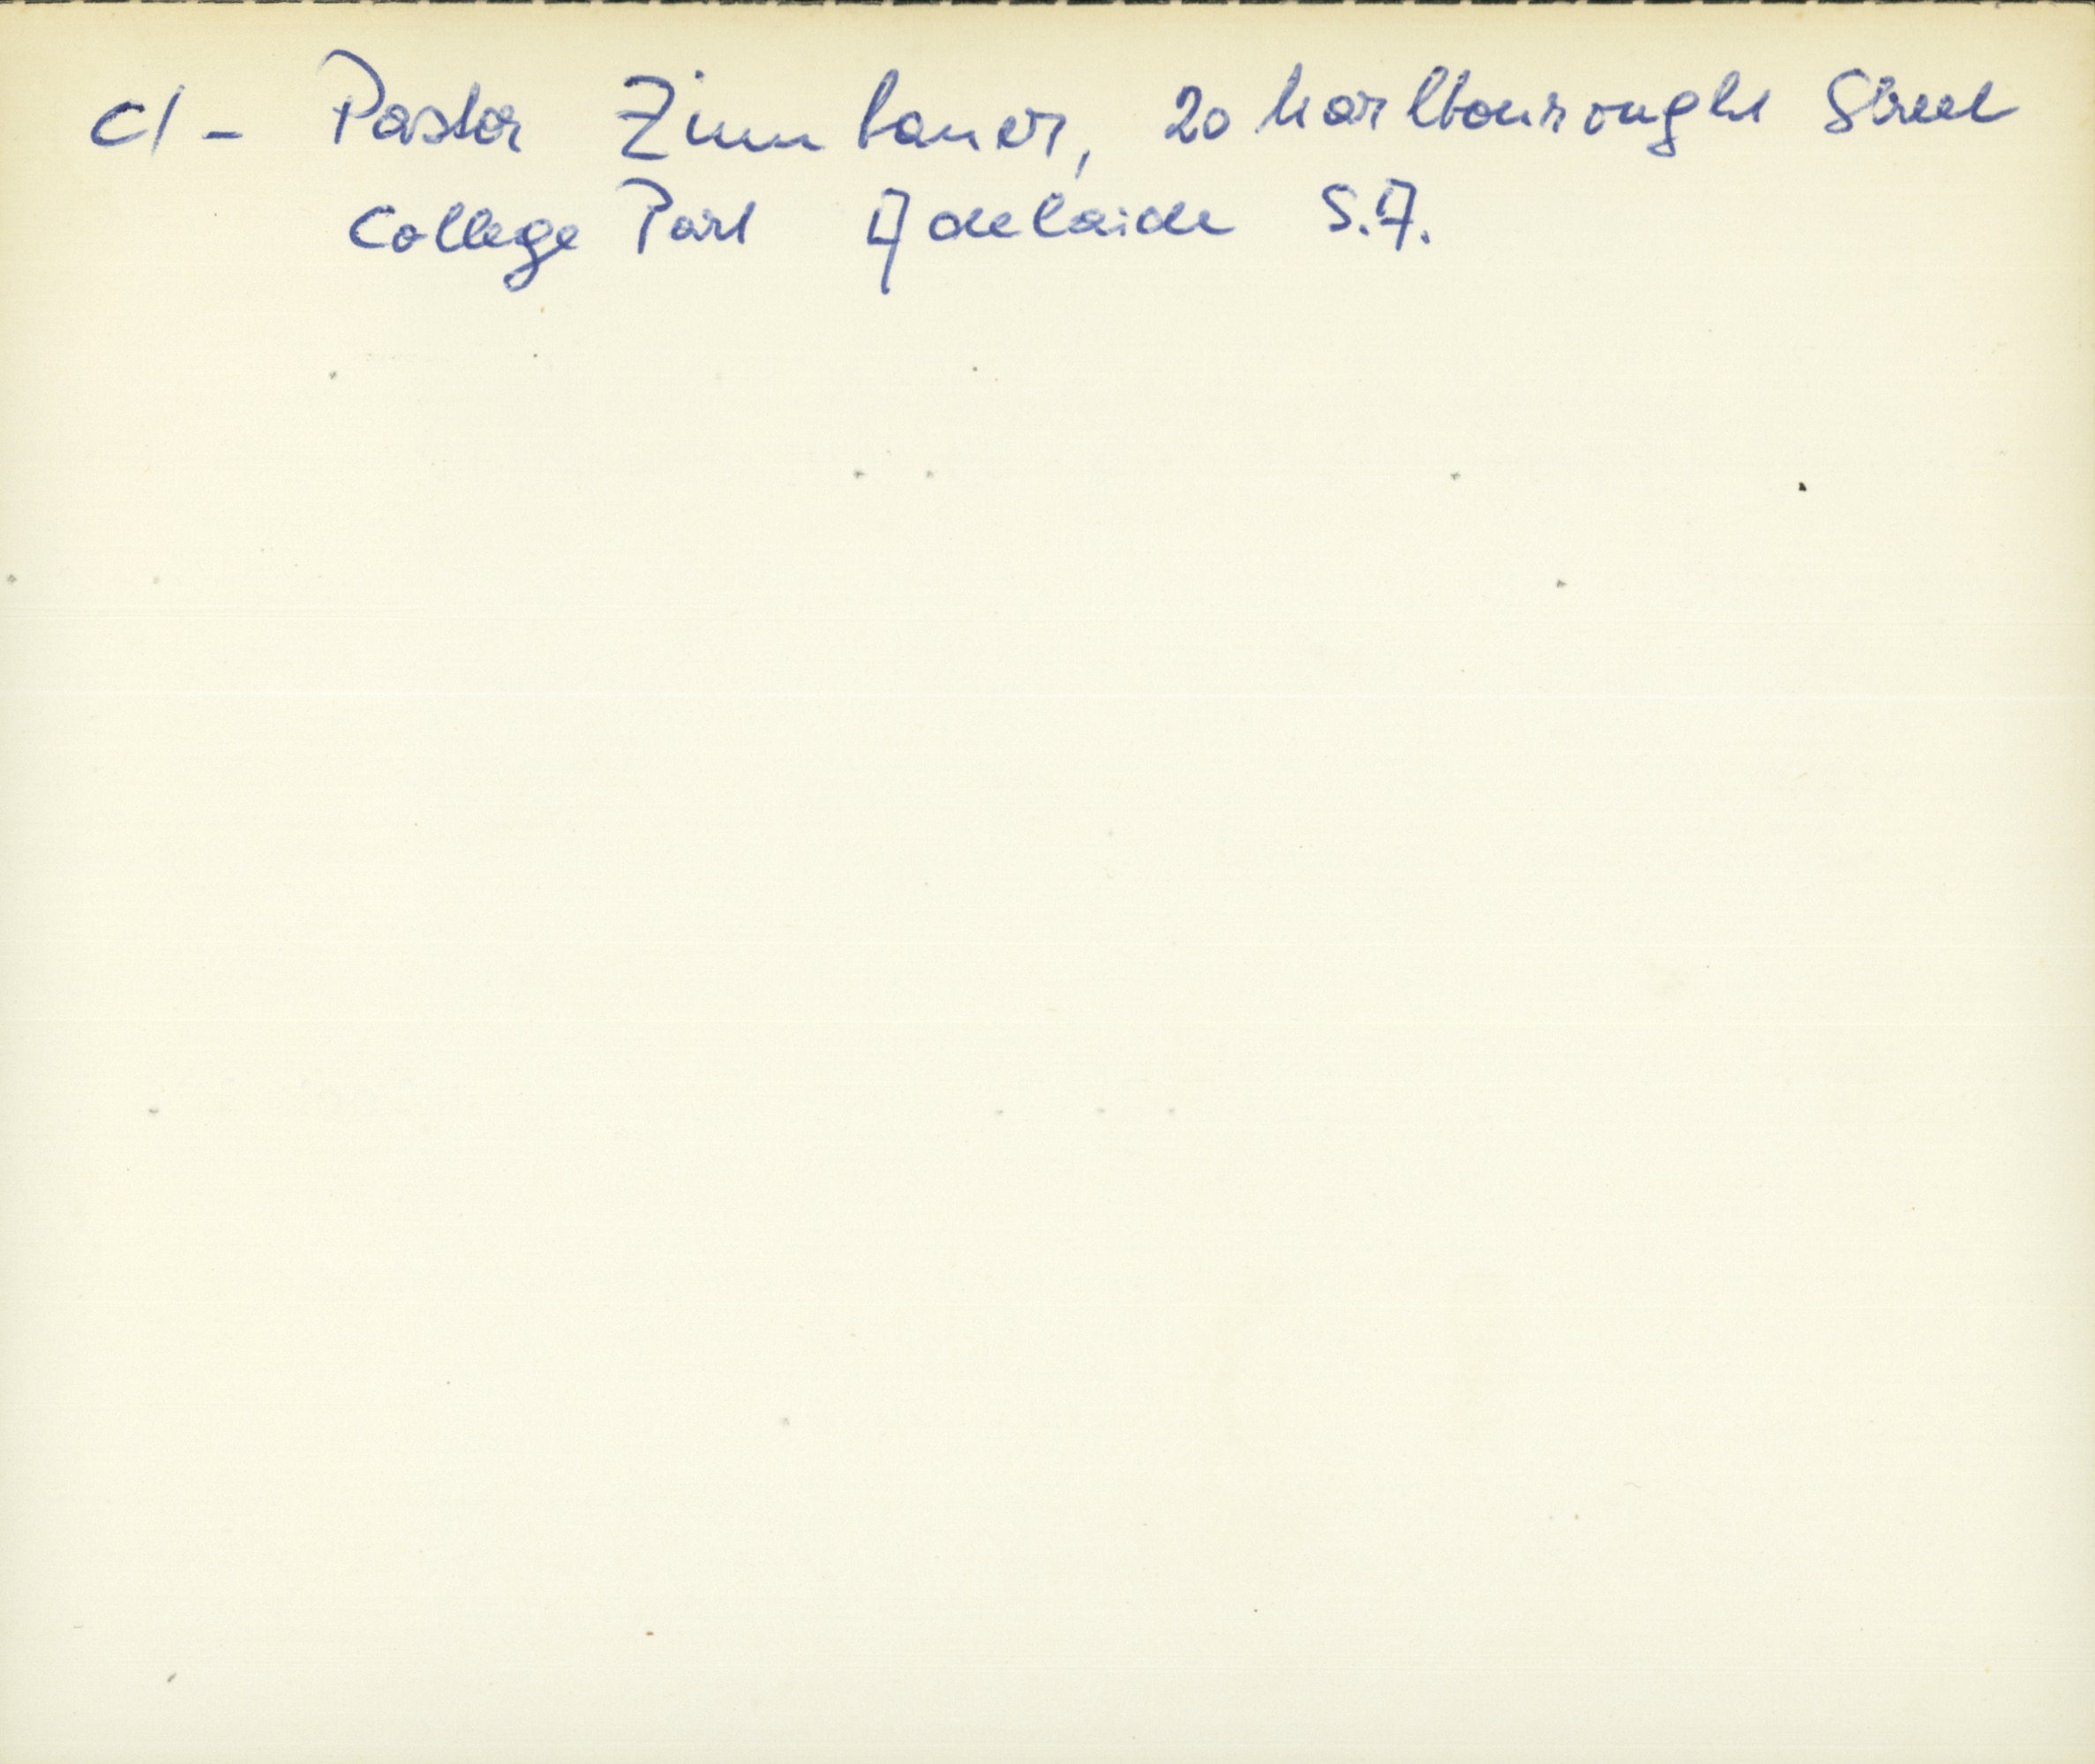 c/- Pastor Zinnbauer, 20 Marlbourough Street
College Park Adelaide S.A.